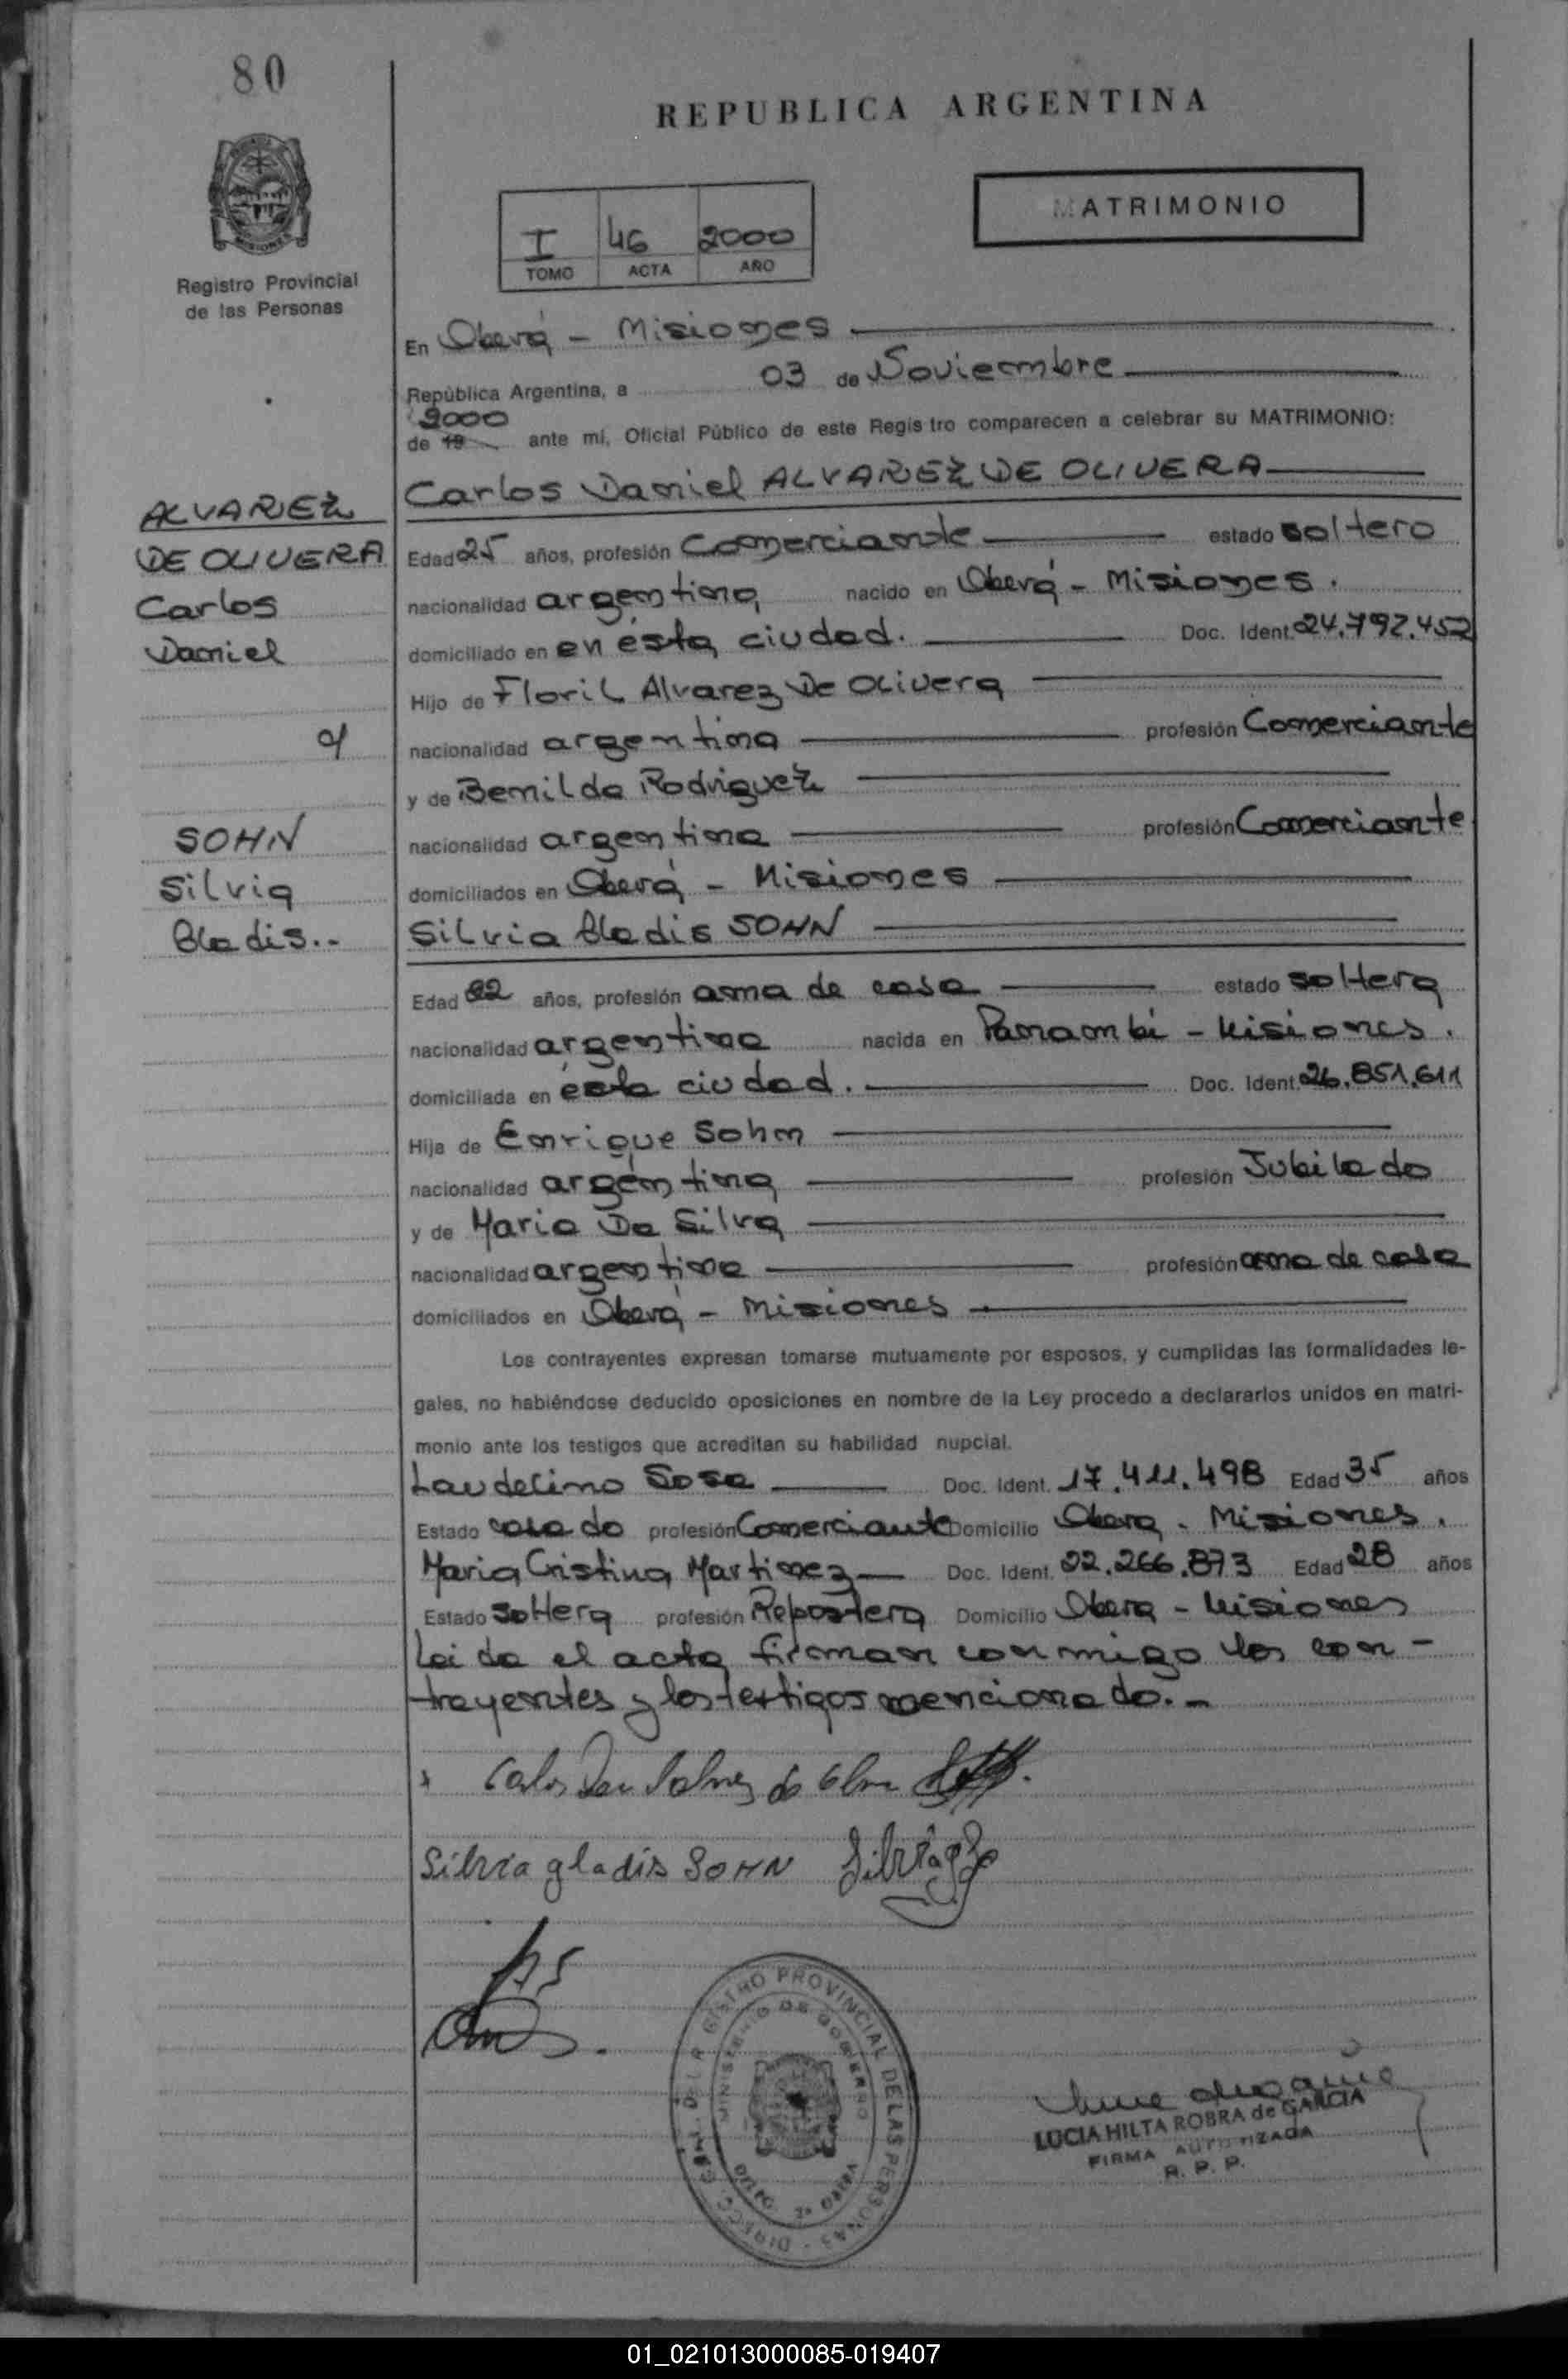 80
REPUBLICA ARGENTINA
MATRIMONIO
I 46 2000
TOMO ACTA AÑO
Registro Provincial
de las Personas
En Oberá - Misiones
República Argentina, a 03 de Noviembre
2000
de 19 ante mí, Oficial Público de este Registro comparecen a celebrar su MATRIMONIO:
Carlos Daniel ALVAREZ DE OLIVERA
ALVAREZ
DE OLIVERA
Carlos
Daniel
y
SOHN
Silvia
Gladis.-
Edad 25 años, profesión Comerciante estado soltero
nacionalidad argentina nacido en Oberá - Misiones.
domiciliado en en ésta ciudad. Doc. Ident. 24.792.452
Hijo de Floril Alvarez De Olivera
nacionalidad argentina profesión Comerciante
y de Benilda Rodriguez
nacionalidad argentina profesión Comerciante
domiciliados en Oberá - Misiones
Silvia Gladis SOHN
Edad 22 años, profesión ama de casa estado soltera
nacionalidad argentina nacida en Panambí - Misiones.
domiciliada en ésta ciudad. Doc. Ident. 26.851.611
Hija de Enrique Sohn
nacionalidad argentina profesión Jubilado
y de Maria Da Silva
nacionalidad argentina profesión ama de casa
domiciliados en Oberá - Misiones
Los contrayentes expresan tomarse mutuamente por esposos, y cumplidas las formalidades le-
gales, no habiéndose deducido oposiciones en nombre de la Ley procedo a declararlos unidos en matri-
monio ante los testigos que acreditan su habilidad nupcial.
Laudelino Sosa Doc. Ident. 17.411.498 Edad 35 años
Estado casado profesión Comerciante Domicilio Obera - Misiones.
Maria Cristina Martinez Doc. Ident. 22.266.873 Edad 28 años
Estado soltera profesión Repostera Domicilio Obera - Misiones
Leida el acta firman conmigo los con-
trayentes y los testigos mencionado.-
Silvia gladis SOHN
DIRECC. GRAL. DEL REGISTRO PROVINCIAL DE LAS PERSONAS
MINISTERIO DE GOBIERNO
LUCIA HILTA ROBRA de GARCIA
FIRMA AUTORIZADA
R. P. P.
01_021013000085-019407